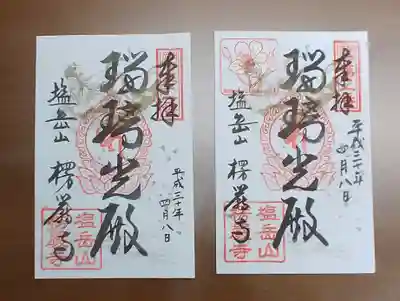 奉拝
瑠璃光殿
塩岳山 楞嚴寺
平成三十年
四月八日
塩岳山
楞厳寺
奉拝
瑠璃光殿
塩岳山 楞嚴寺
平成三十年
四月八日
塩岳山